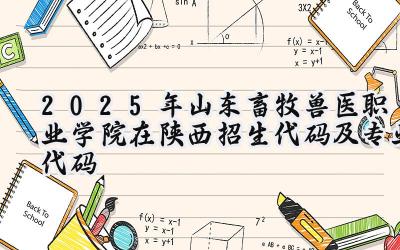 sin A
3X2
Back To School
ax2 + bx + c = 0
f(x) = x-1
x = y+1
C
2025年山东畜牧兽医职
业学院在陕西招生代码及专业
代码
Back To
School
f(x) = x-1
x = y+1
7²
Back To
School